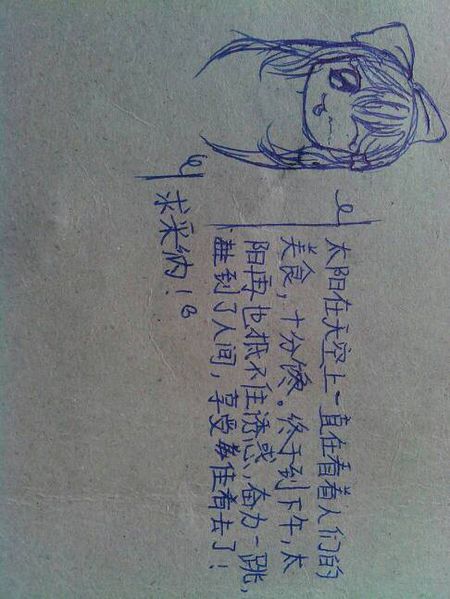 太阳在天空上一直在看着人们的
美食，十分馋。终于到下午，太
阳再也抵不住诱惑，奋力一跳，
蹦到了人间，享受每佳肴去了！
求采纳！